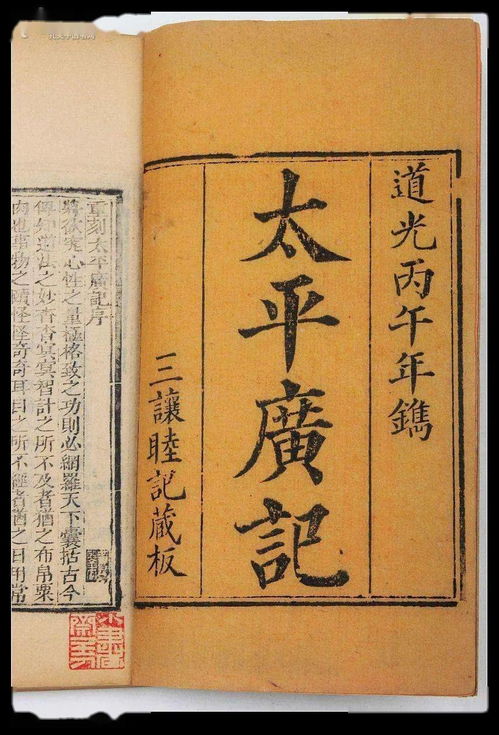 道光丙午年鐫
太平廣記
三讓睦記藏板
重刻太平廣記序
欲究心性之量極格致之功則必網羅天下囊括古今
傳知道法之妙杳杳冥冥智計之所不及者猶之布帛粟
肉也事物之賾怪怪奇奇耳目之所不經者猶之日用常